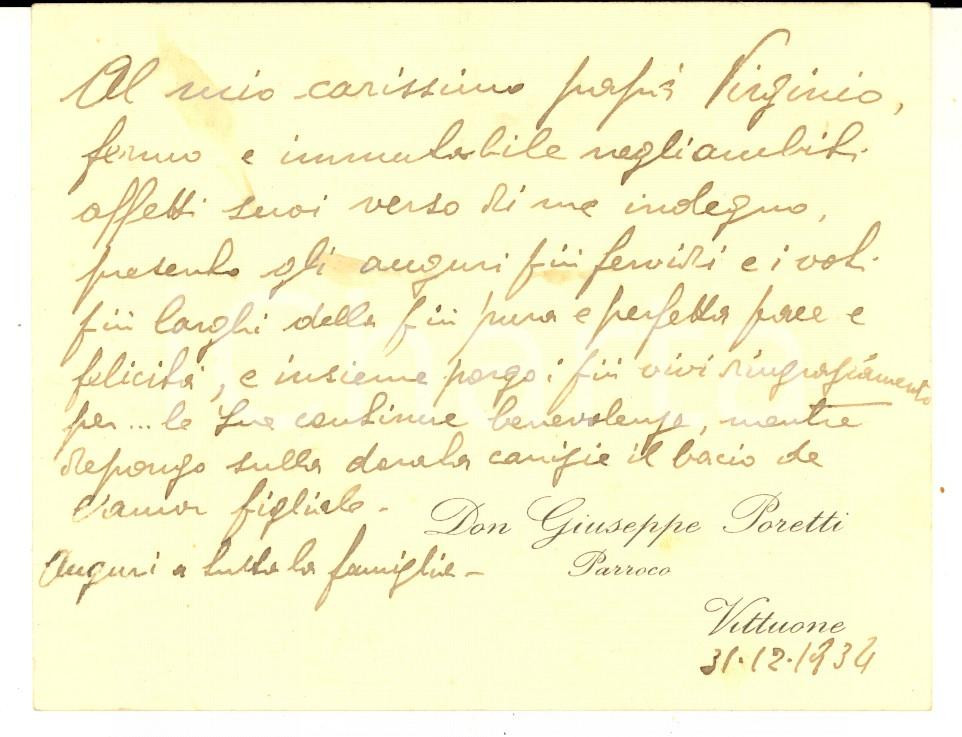 Al mio carissimo papà Virginio,
fermo e immutabile negli ambiti
affetti suoi verso di me indegno,
presento gli auguri più fervidi e i voti
più larghi della più pura e perfetta pace e
felicità, e insieme porgo i più vivi ringraziamento
per... le Sue continue benevolenze, mentre
depongo sulla dorata canizie il bacio de
l'amor figliale -
Don Giuseppe Poretti
Auguri a tutta la famiglia -
Parroco
Vittuone
31.12.1934